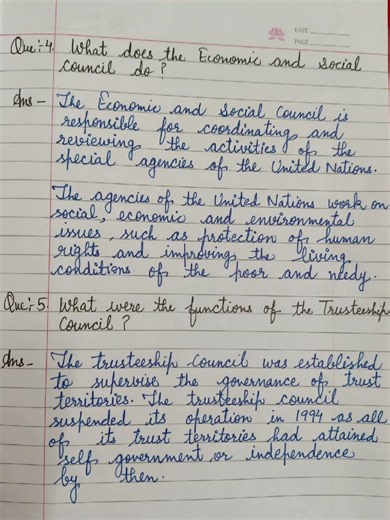 DATE
PAGE
Que:-4. What does the Economic and Social
Council do?
Ans - The Economic and Social Council is
responsible for coordinating and
reviewing the activities of the
special agencies of the United Nations.
The agencies of the United Nations work on
social, economic and environmental
issues, such as protection of human
rights and improving the living
conditions of the poor and needy.
Que:-5. What were the functions of the Trusteeship
Council?
Ans - The trusteeship Council was established
to supervise the governance of trust
territories. The trusteeship council
suspended its operation in 1994 as all
of its trust territories had attained
self government or independence
by then.